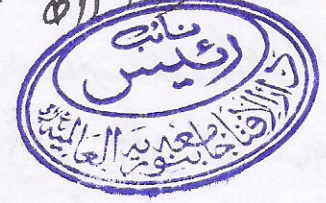 نائب
رئیس
دارالافتا جامعہ بنوریہ العالمیہ